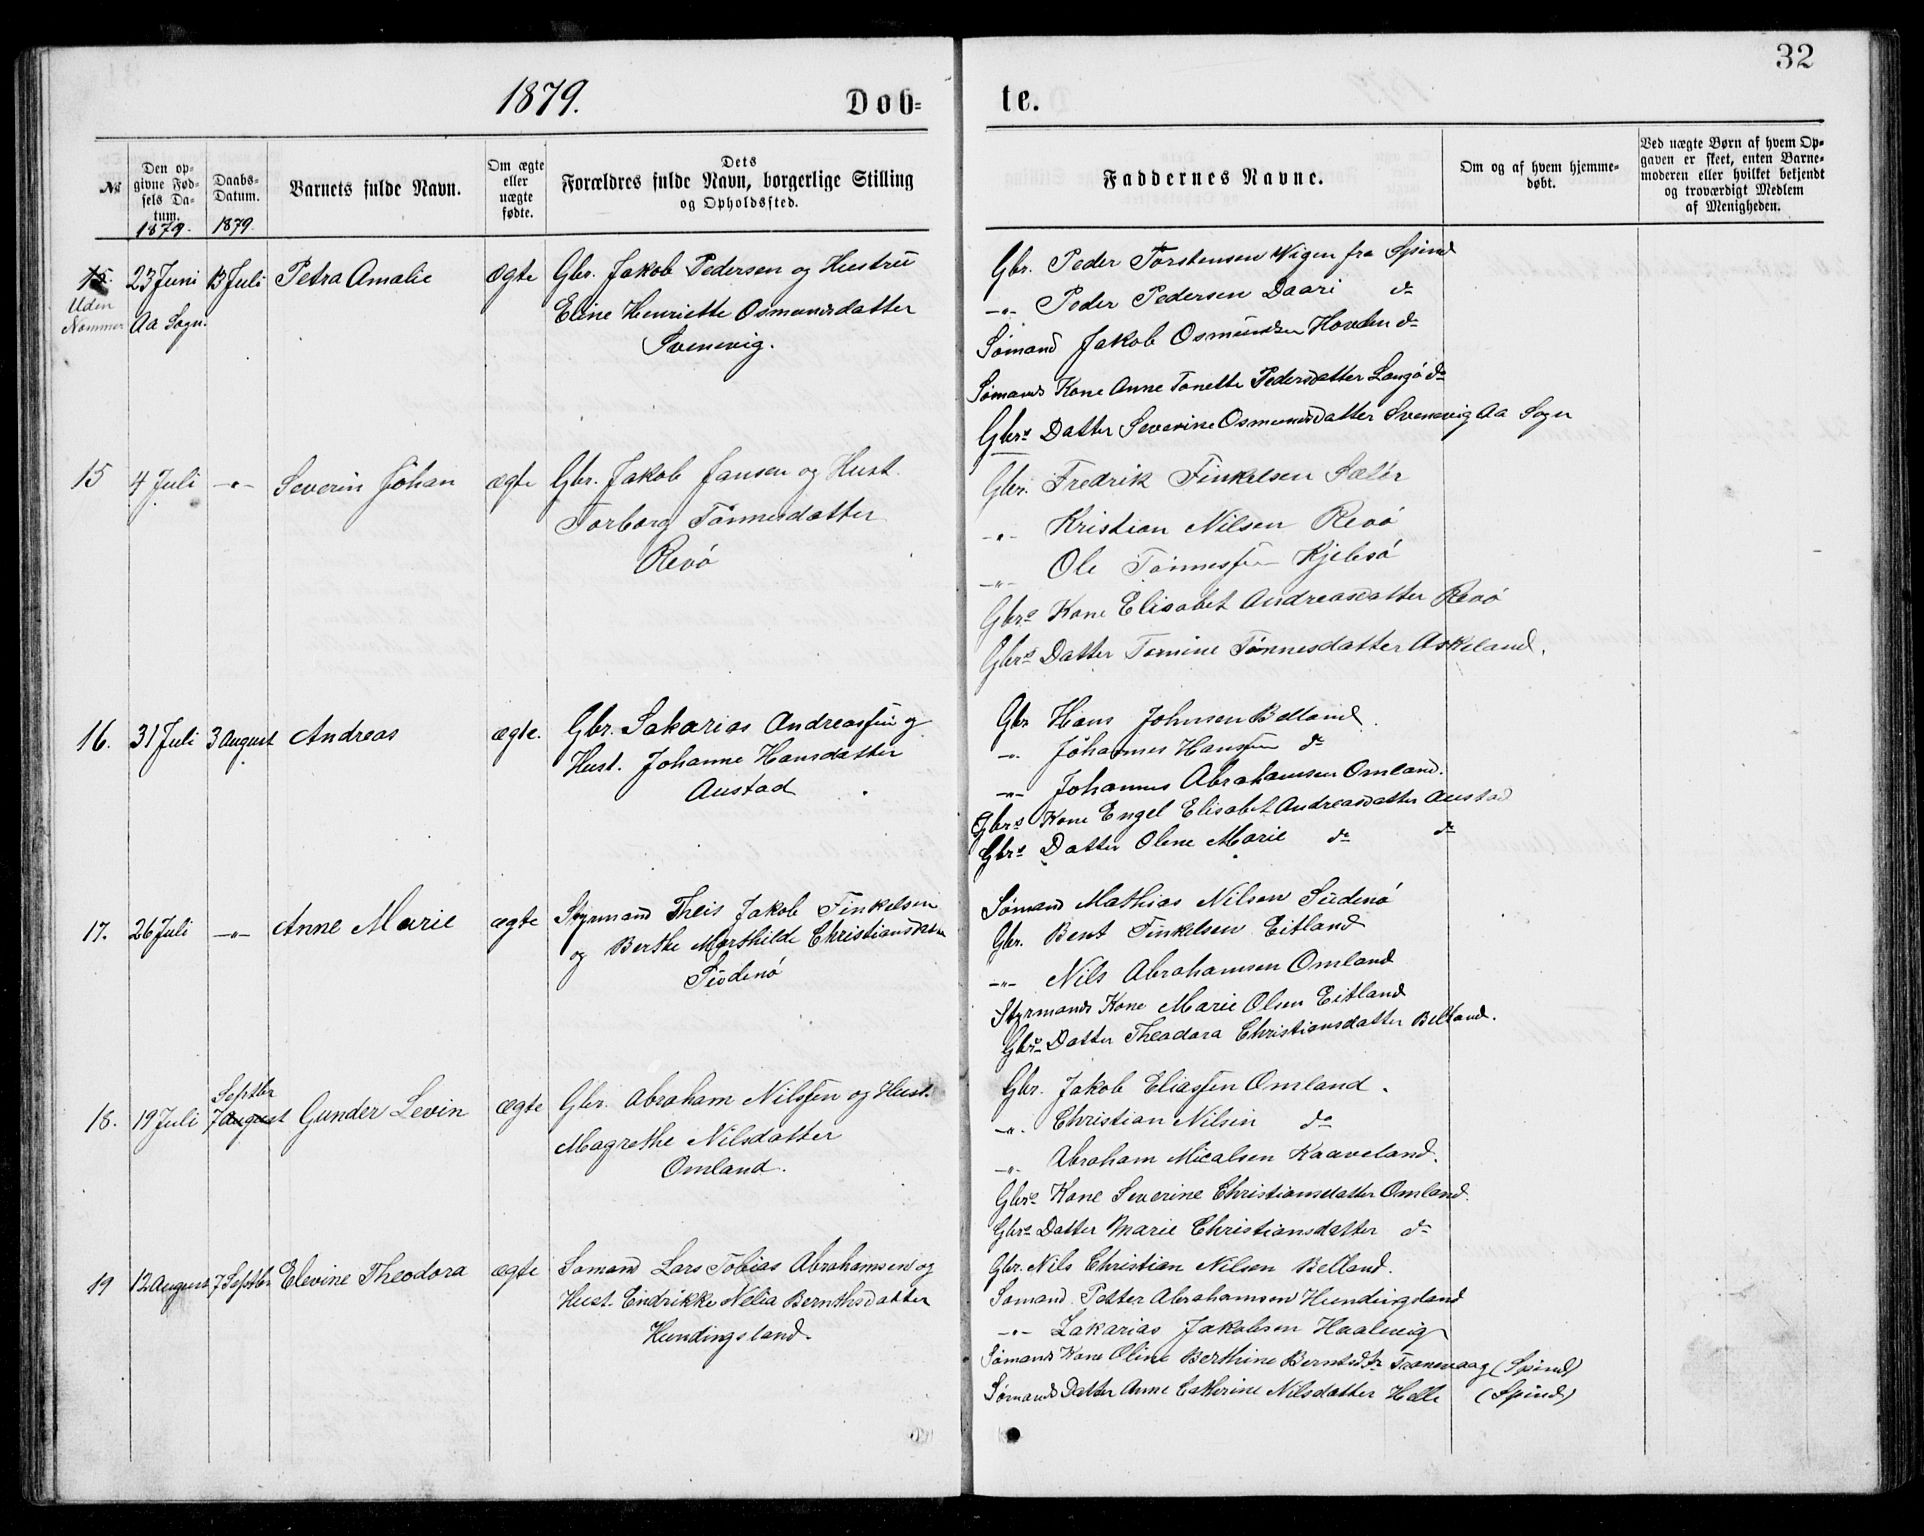 32
1879. Døb- te.
№
Den op-
givne Fød-
sels Da-
tum.
1879.
Daabs-
Datum.
1879.
Barnets fulde Navn.
Om ægte
eller
uægte
fødte.
Dets
Forældres fulde Navn, borgerlige Stilling
og Opholdssted.
Faddernes Navne.
Om og af hvem hjemme-
døbt.
Ved uægte Børn af hvem Op-
gaven er skeet, enten Barne-
moderen eller hvilket bekjendt
og troværdigt Medlem
af Menigheden.
15. 23 Juni 13 Juli Petra Amalie ægte Gbr. Jakob Pedersen og Hustru
Uden
Nommer Aa Sogn. Eline Henriette Osmundsdatter
Svenevig.
Gbr. Peder Torstensen Vigen fra Spind
-"- Peder Pedersen Daari do
Sømand Jakob Osmundsen Hovden do
Sømands Kone Anne Tonette Pedersdatter Langø do
Gbrs Datter Severine Osmundsdatter Svenevig Aa Sogn
15 4 Juli -"- Severin Johan ægte Gbr. Jakob Jansen og Hust.
Torborg Tønnesdatter
Revø
Gbr. Fredrik Finkelsen Sælør
-"- Kristian Nilsen Revø
-"- Ole Tønnessen Kjelsø
Gbrs Kone Elisabet Andreasdatter Revø
Gbrs Datter Tomine Tønnesdatter Askeland.
16. 31 Juli 3 August Andreas ægte. Gbr. Sakarias Andreassen og
Hust. Johanne Hansdatter
Austad
Gbr Hans Johnsen Belland.
-"- Johannes Hanssen do
-"- Johannes Abrahamsen Omland.
Gbrs Kone Engel Elisabet Andreasdatter Austad
Gbrs Datter Olene Marie do do
17. 26 Juli -"- Anne Marie ægte Styrmand Theis Jakob Finkelsen
og Berthe Marthilde Christiansdatter
Südenø
Sømand Mathias Nilsen Südenø
Gbr. Bent Finkelsen Eitland
-"- Nils Abrahamsen Omland
Styrmands Kone Marie Olsen Eitland
Gbrs Datter Theodora Christiansdatter Belland.
Septbr
18. 19 Juli 7 August Gunder Levin ægte Gbr. Abraham Nilssen og Hust.
Magrethe Nilsdatter
Omland.
Gbr. Jakob Eliassen Omland.
-"- Christian Nilsen do
-"- Abraham Micalsen Kaaveland.
Gbrs Kone Severine Christiansdatter Omland.
Gbrs Datter Marie Christiansdatter do
19 12 August 7 Septbr Elevine Theodora ægte Sømand Lars Tobias Abrahamsen og
Hust. Endrikke Nelia Bernthsdatter
Hundingsland.
Gbr. Nils Christian Nilsen Belland.
Sømand Petter Abrahamsen Hundingsland
-"- Zakarias Jakobsen Haalevig
Sømands Kone Oline Berthine Berntsdtr Tranevaag (Spind)
Sømands Datter Anne Catherine Nilsdatter Helle (Spind)